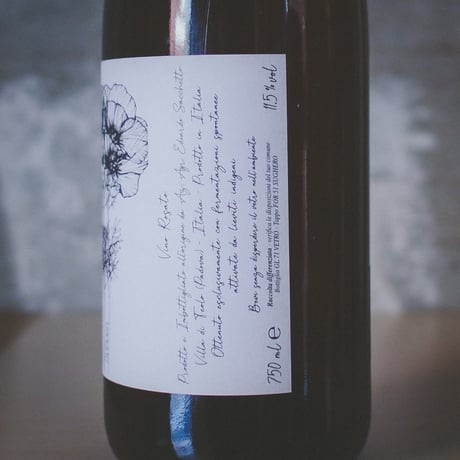 Vino Rosato
Prodotto e Imbottigliato all'origine da Az. Agr. Edardo Sacchetto
Villa di Teolo (Padova) - Italia - Prodotto in Italia
Ottenuto esclusivamente con fermentazioni spontanee
attivate da lieviti indigeni
Bevi senza disperdere il vetro nell'ambiente
Raccolta differenziata - verifica le disposizioni del tuo comune
Bottiglia GL 71 VETRO - Tappo FOR 51 SUGHERO
750 ml ℮ 11.5 % vol